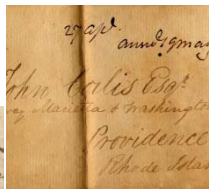 27 apl.
John Corlis Esqr.
Marietta & Washington
Providence
Rhode Islan